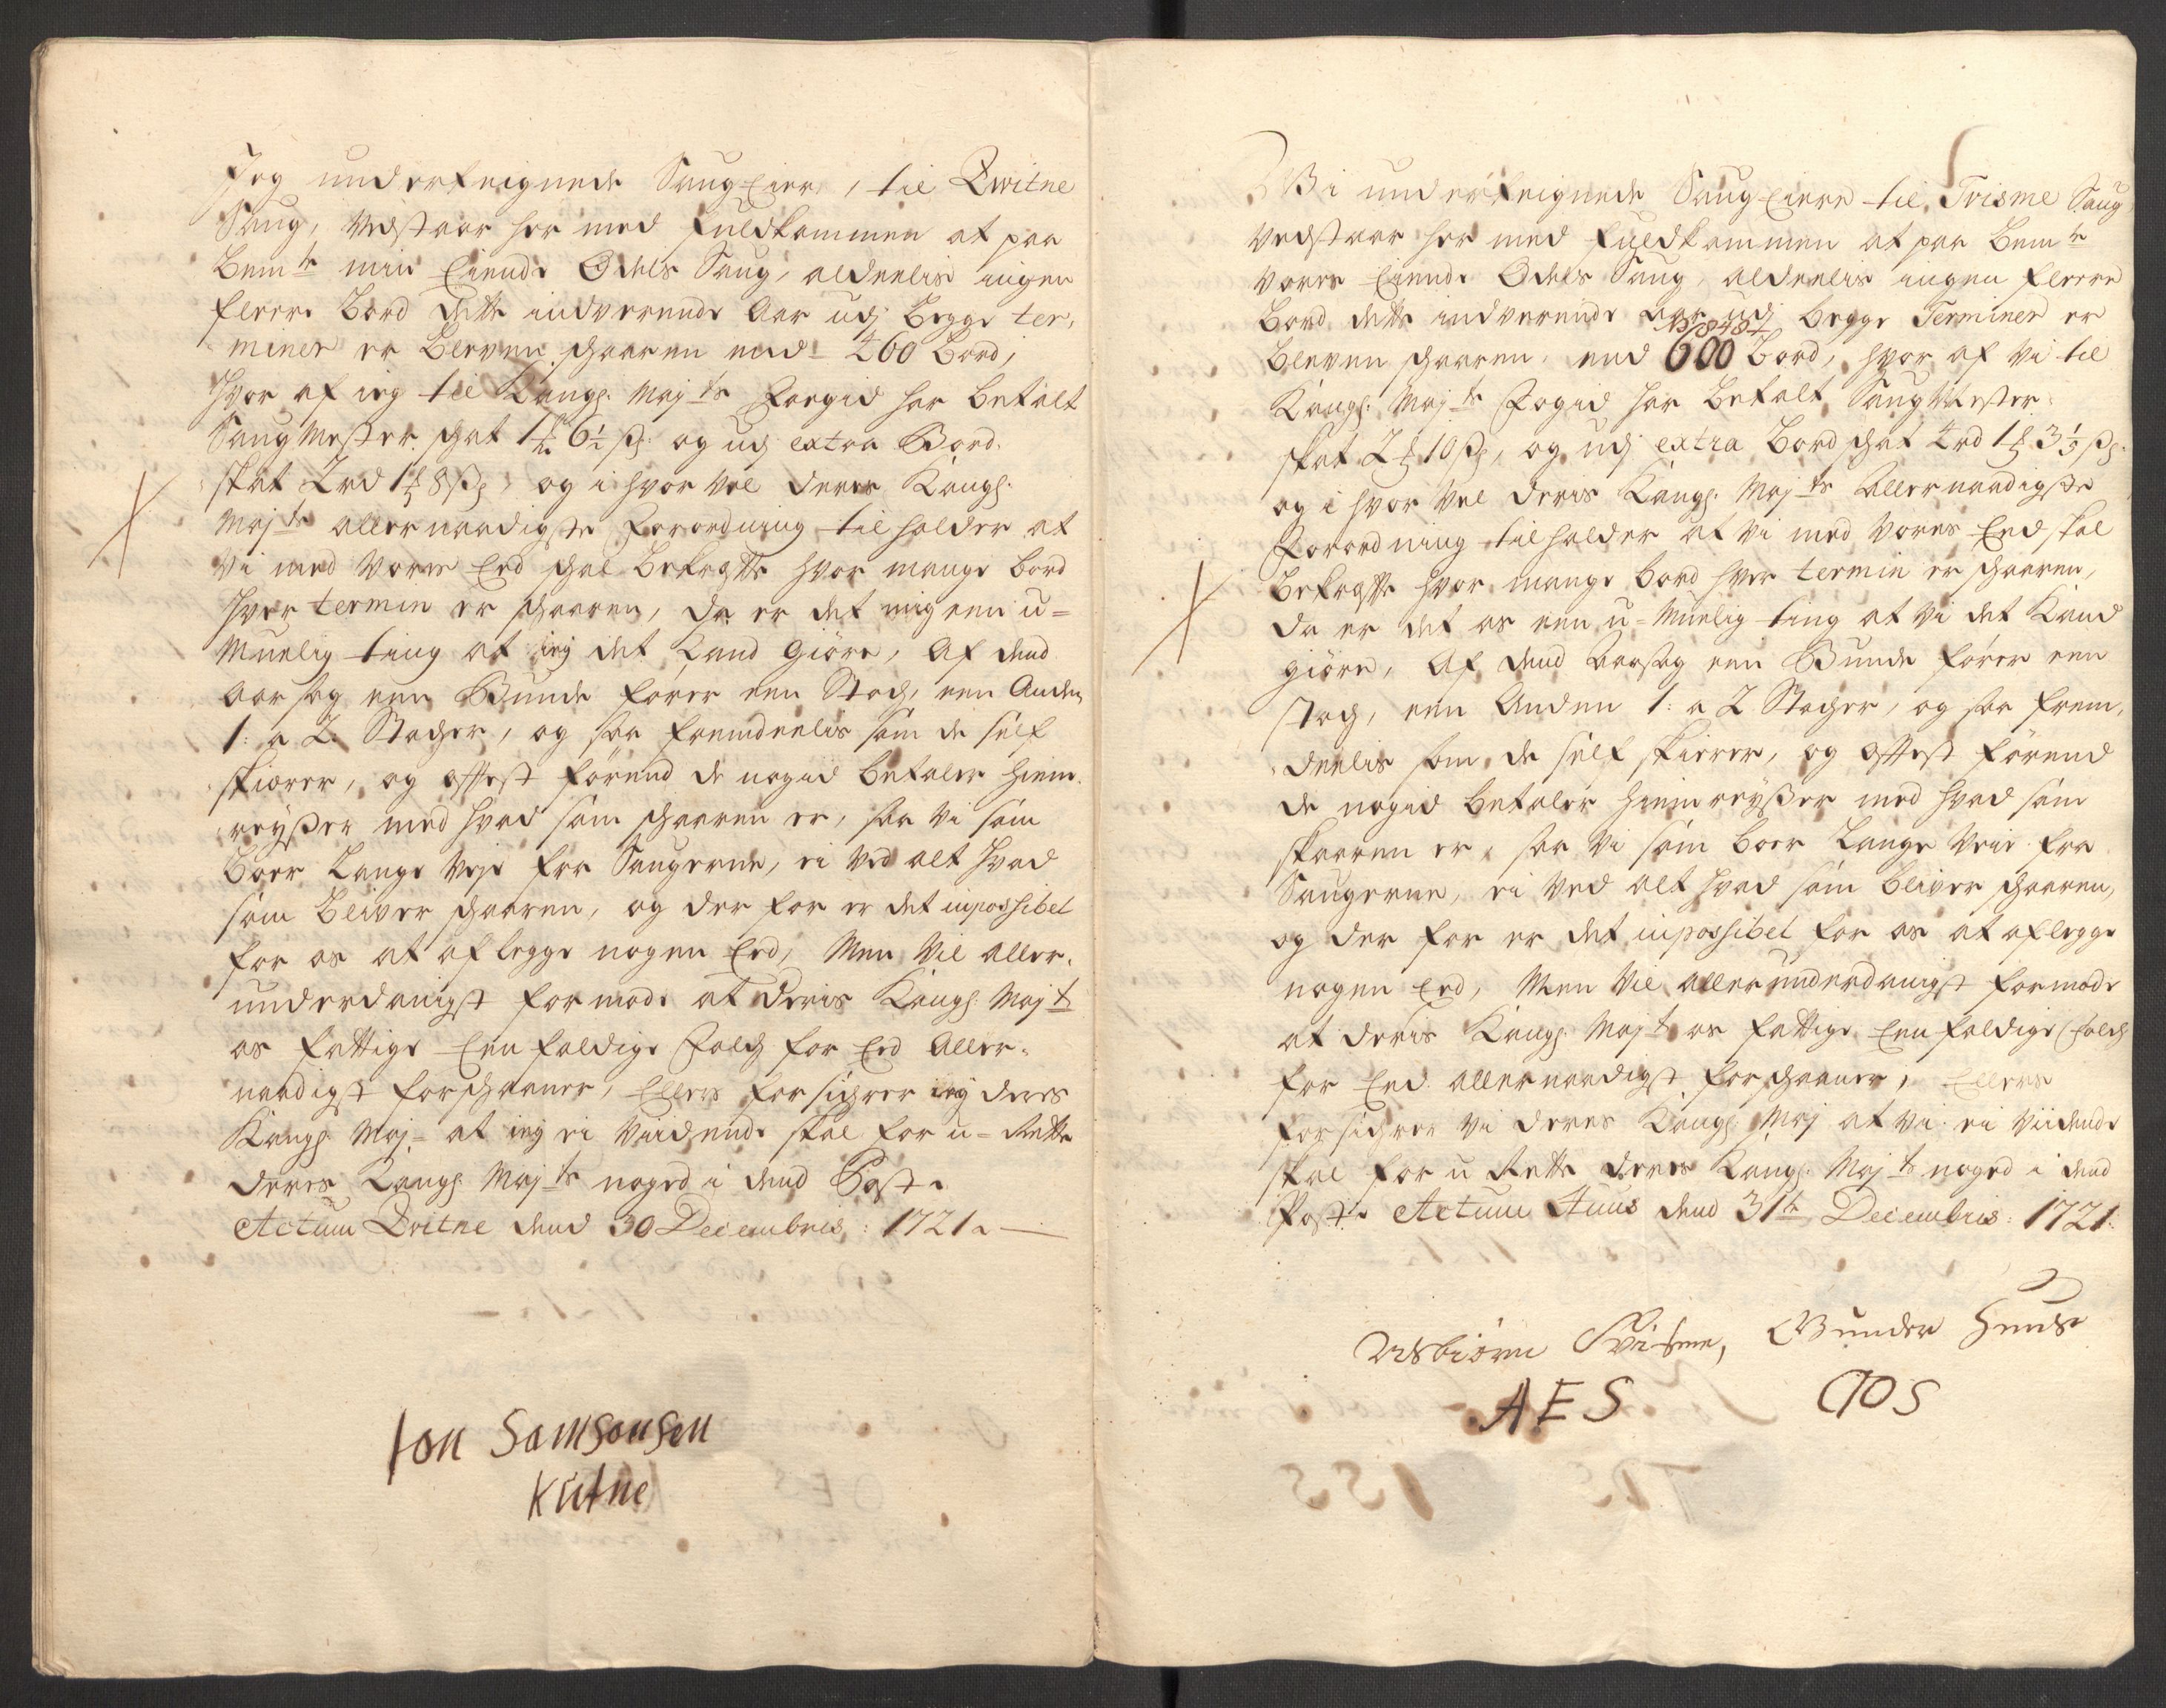 Jeg underteignede SaugEier, til Qvitne
Saug, vedstaar her med fuldkommen at paa
bemte min Eiende Odels Saug, aldeelis ingen
fleere bord dette indverende Aar udj begge ter,
miner er bleven schaaren end 460 bord,
hvor af ieg til Kongl. Majts Foegid har betalt
SaugMester schat 1 ort 6½ ß og udj extra Bord.
skat 2 rd 1 ort 8 ß, og i hvor vel deres Kongl.
Majts allernaadigste Forordning tilholder at
vi med vores Eed schal bekrefte hvor mange bord
hver termin er schaaren, da er det mig een u=
muelig ting at ieg det kand giöre, Af dend
aarsag een Bunde förer een Stoch, een Anden
1: a 2 Stocher, og saa fremdeelis som de sielf
skiærer, og oftest förend de nogid betaler hiem
reyßer med hvad som schaaren er, saa vi som
boer lange veje fra Saugerne, ei ved alt hvad
som bliver schaaren, og der for er det inpossibel
for os at aflegge nogen Eed, Men vil aller,
underdanigst formode at deris Kongl. Majt
os fattige Eenfoldige Folch for Eed Aller=
naadigst forschaaner, Ellers forsichrer ieg deres
Kongl. Maj= at ieg ei viidende skal for u=rette
deres Kongl. Majts noged i dend Post.
Actum Qvitne dend 30 Decembris: 1721.
Jon Samsonsen
Kuitne
Vi underteignede SaugEiere til Tvisme Saug
vedstaar her med fuldkommen at paa bemte
vores Eiende Odels Saug, aldeelis ingen fleere
bord dette indverende aar udj begge Terminer er
bleven schaaren, end 600 bord, hvor af vi til
Kongl. Majts Fogid har betalt SaugMester
skat 2 ort 10 ß, og udj extra bord schat 4 rd 1 ort 3⅓ ß.
og i hvor vel deris Kongl. Majts Allernaadigste
Forordning tilholder at vi med vores Eed skal
bekrefte hvor mange bord hver termin er schaaren,
da er det os een u=muelig ting at vi det kand
giöre, Af dend aarsag een Bunde förer een
stoch, een Anden 1: a 2 Stocher, og saa frem,
deelis som de sielf skierer, og oftest förend
de nogid betaler hiem reyßer med hvad som
skaaren er, saa vi som boer lange veie fra
Saugerne, ei ved alt hvad som bliver schaaren,
og der for er det inpossibel for os at aflegge
nogen Eed, Men vil allerunderdanigst formode
at deris Kongl. Majt os fattige Eenfoldige Folch
for Eed allernaadigst forschaaner, Ellers
forsichrer vi deres Kongl. Maj at vi ei viidende
skal for u rette deres Kongl. Majts noged i dend
Post. Actum Huus dend 31te Decembris: 1721.
Asbiörn Tvisme, Gunder Huus
AES GOS